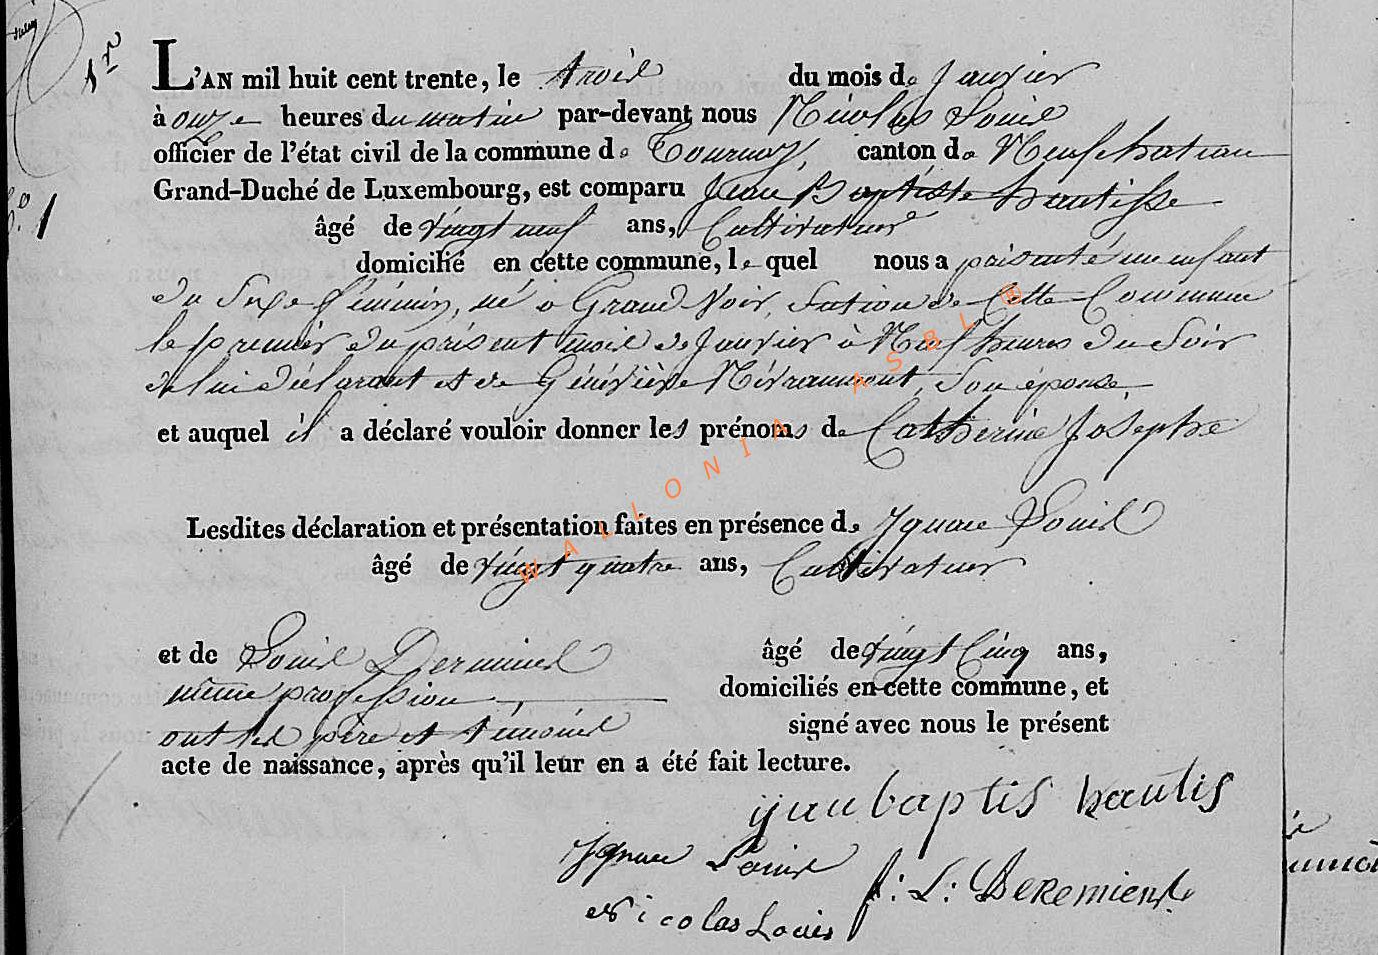 1er
L'AN mil huit cent trente, le trois du mois de Janvier
à onze heures du matin par-devant nous Nicolas Louis
officier de l'état civil de la commune de Tournay, canton de Neufchateau
Grand-Duché de Luxembourg, est comparu Jean Baptiste hautisse
No. 1
âgé de vingt neuf ans, Cultivateur
domicilié en cette commune, lequel nous a présenté un enfant
du Sexe féminin, né à Grand Voir, Section de Cette Commune
le premier du présent mois de Janvier à Neuf heures du Soir
de lui déclarant et de Généviève Névraumont, Son épouse
et auquel il a déclaré vouloir donner les prénoms de Catherine Josephe
Lesdites déclaration et présentation faites en présence de Ignace Louis
âgé de vingt quatre ans, Cultivateur
et de Louis Dermience âgé de vingt Cinq ans,
même profession, domiciliés en cette commune, et
ont les père et témoins signé avec nous le présent
acte de naissance, après qu'il leur en a été fait lecture.
jjean baptis hautis
Ignace Louis J: L: DeRemience
Nicolas Louis
WALLONIA ASBL ®